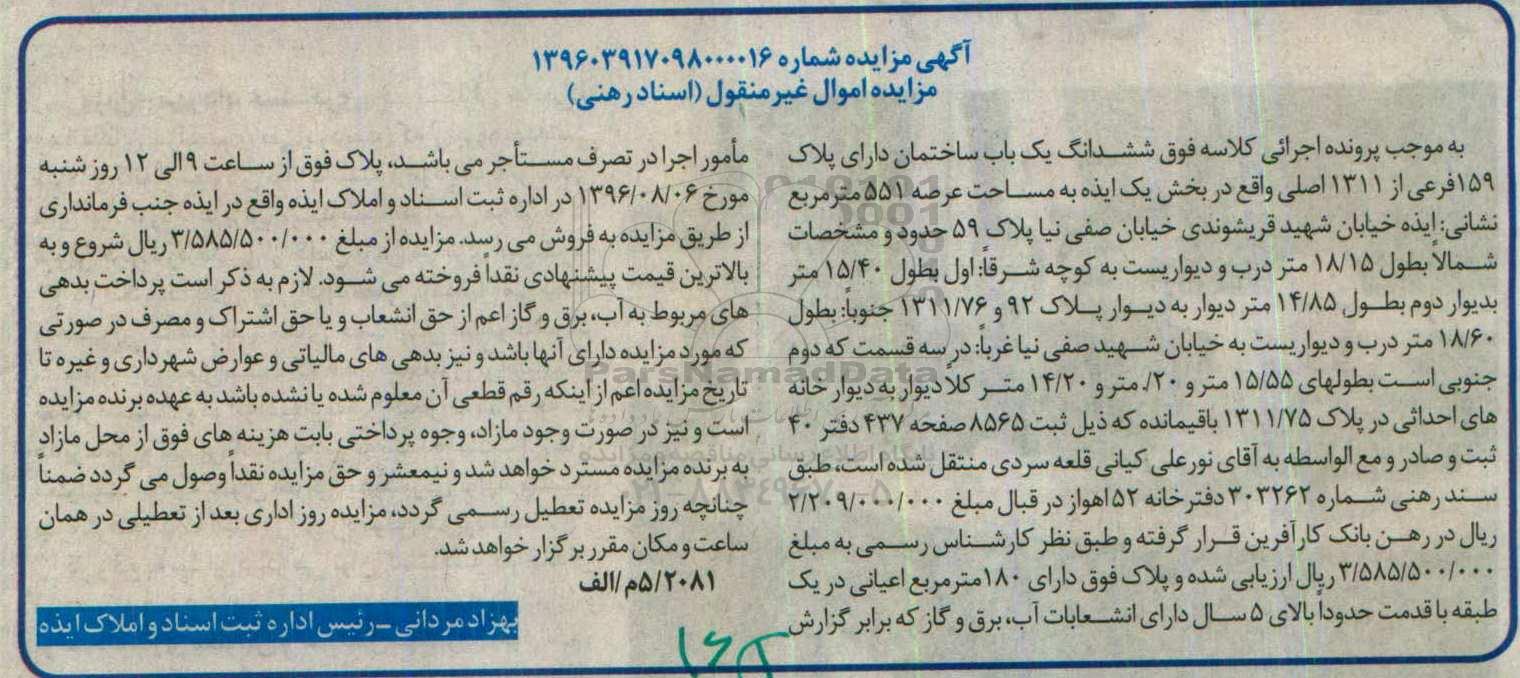 آگهی مزایده شماره ۱۳۹۶۰۳۹۱۷۰۹۸۰۰۰۰۱۶
مزایده اموال غیرمنقول (اسناد رهنی)
به موجب پرونده اجرائی کلاسه فوق ششدانگ یک باب ساختمان دارای پلاک
۱۵۹فرعی از ۱۳۱۱ اصلی واقع در بخش یک ایذه به مساحت عرصه ۵۵۱ مترمربع
نشانی: ایذه خیابان شهید قریشوندی خیابان صفی نیا پلاک ۵۹ حدود و مشخصات
شمالاً بطول ۱۸/۱۵ متر درب و دیواریست به کوچه شرقاً: اول بطول ۱۵/۴۰ متر
بدیوار دوم بطول ۱۴/۸۵ متر دیوار به دیوار پلاک ۹۲ و ۱۳۱۱/۷۶ جنوباً: بطول
۱۸/۶۰ متر درب و دیواریست به خیابان شهید صفی نیا غرباً: در سه قسمت که دوم
جنوبی است بطولهای ۱۵/۵۵ متر و ۲۰/. متر و ۱۴/۲۰ متر کلاً دیوار به دیوار خانه
های احداثی در پلاک ۱۳۱۱/۷۵ باقیمانده که ذیل ثبت ۸۵۶۵ صفحه ۴۳۷ دفتر ۴۰
ثبت و صادر و مع الواسطه به آقای نورعلی کیانی قلعه سردی منتقل شده است، طبق
سند رهنی شماره ۳۰۳۲۶۲ دفترخانه ۵۲ اهواز در قبال مبلغ ۲/۲۰۹/۰۰۰/۰۰۰
ریال در رهن بانک کارآفرین قرار گرفته و طبق نظر کارشناس رسمی به مبلغ
۳/۵۸۵/۵۰۰/۰۰۰ ریال ارزیابی شده و پلاک فوق دارای ۱۸۰ مترمربع اعیانی در یک
طبقه با قدمت حدوداً بالای ۵ سال دارای انشعابات آب، برق و گاز که برابر گزارش
مأمور اجرا در تصرف مستأجر می باشد، پلاک فوق از ساعت ۹ الی ۱۲ روز شنبه
مورخ ۱۳۹۶/۰۸/۰۶ در اداره ثبت اسناد و املاک ایذه واقع در ایذه جنب فرمانداری
از طریق مزایده به فروش می رسد. مزایده از مبلغ ۳/۵۸۵/۵۰۰/۰۰۰ ریال شروع و به
بالاترین قیمت پیشنهادی نقداً فروخته می شود. لازم به ذکر است پرداخت بدهی
های مربوط به آب، برق و گاز اعم از حق انشعاب و یا حق اشتراک و مصرف در صورتی
که مورد مزایده دارای آنها باشد و نیز بدهی های مالیاتی و عوارض شهرداری و غیره تا
تاریخ مزایده اعم از اینکه رقم قطعی آن معلوم شده یا نشده باشد به عهده برنده مزایده
است و نیز در صورت وجود مازاد، وجوه پرداختی بابت هزینه های فوق از محل مازاد
به برنده مزایده مسترد خواهد شد و نیمعشر و حق مزایده نقداً وصول می گردد ضمناً
چنانچه روز مزایده تعطیل رسمی گردد، مزایده روز اداری بعد از تعطیلی در همان
ساعت و مکان مقرر برگزار خواهد شد.
۵/۲۰۸۱م/الف
بهزاد مردانی – رئیس اداره ثبت اسناد و املاک ایذه
ParsNamadData
پایگاه اطلاع رسانی مناقصه و مزایده